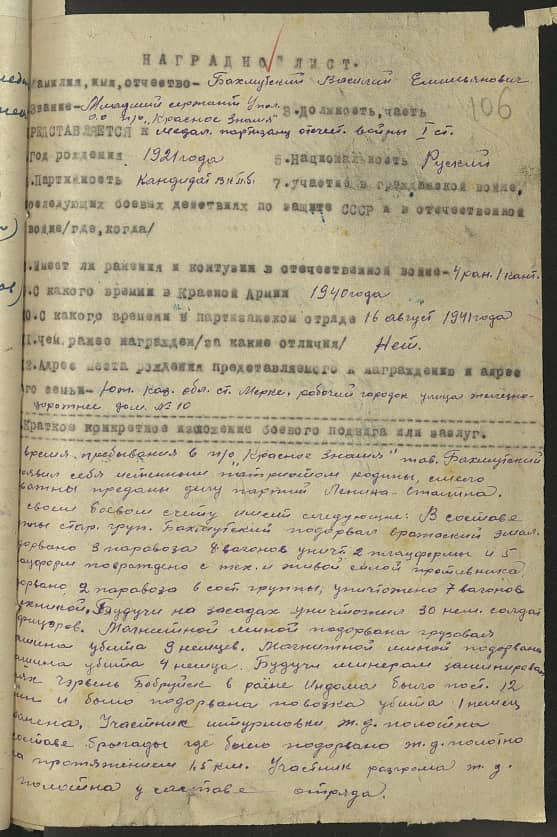 НАГРАДНОЙ ЛИСТ.
Фамилия, имя, отчество- Бахмутский Василий Емильянович
Звание- Младший сержант Упол.
о.о п/о "Красное Знамя" 3. Должность, часть
106
РЕДСТАВЛЯЕТСЯ к медал. партизану отечест. войны I ст.
год рождения 1921 года 5. Национальность Руский
6. Партийность Кандидат ВКПб. 7. участие в гражданской войне,
последующих боевых действиях по защите СССР и в отечественной
войне/где, когда/
8. Имеет ли ранения и контузии в отечественной войне- 4 ран. 1 конт.
9. С какого времени в Красной Армии 1940 года
10. С какого времени в партизанском отряде 16 август 1941 года
11. чем ранее награжден/за какие отличия/ Нет.
12. Адрес места рождения представляемого к награждению и адрес
его семьи- Юж. Каз. обл. ст. Мерке. рабочий городок улица железно-
дорожнее дом. № 10
Краткое конкретное изложение боевого подвига или заслуг.
время пребывания в п/о "Красное Знамя" тов. Бахмутский
оявил себя истенным патриотом родины, смело
преданы делу партий Ленина-Сталина.
своем боевом счету имеет следующие: В составе
ппы стар. груп. Бахмутский подорвал вражеский эшал.
дорвано 3 паровоза 8 вагонов уничт. 2 плацформы и 5
лацформ повреждено с тех. и живой силой противника.
орвано 2 паровоза в сост группы, уничтожено 7 вагонов
ехникой. Будучи на засадах уничтожил 30 нем. солдат
фицеров. Магнитной миной подорвана грузовая
ашина убита 9 немцев. Магнитной миной подорвана
ашина убита 4 немца. Будучи минерам заминирован
Червень Бобруйск в раене Индома было пост. 12
ин и было подорвана повозка убита 1 немец
Участник штурмовки ж.д. полотна
составе бригады где было подорвано ж.д. полотно
а протяжением 1,5 км. Участник разгрома ж.д.
полотна у составе отряда.